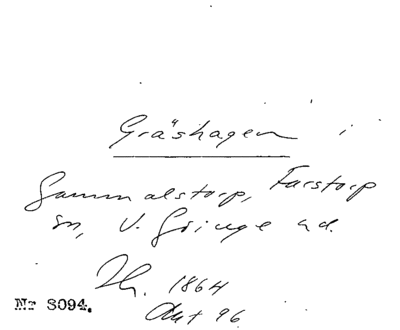 Gräshagen i
Gammalstorp, Farstorp
sn, V. Göinge hd.
1864
Akt 96
Nr 8094.